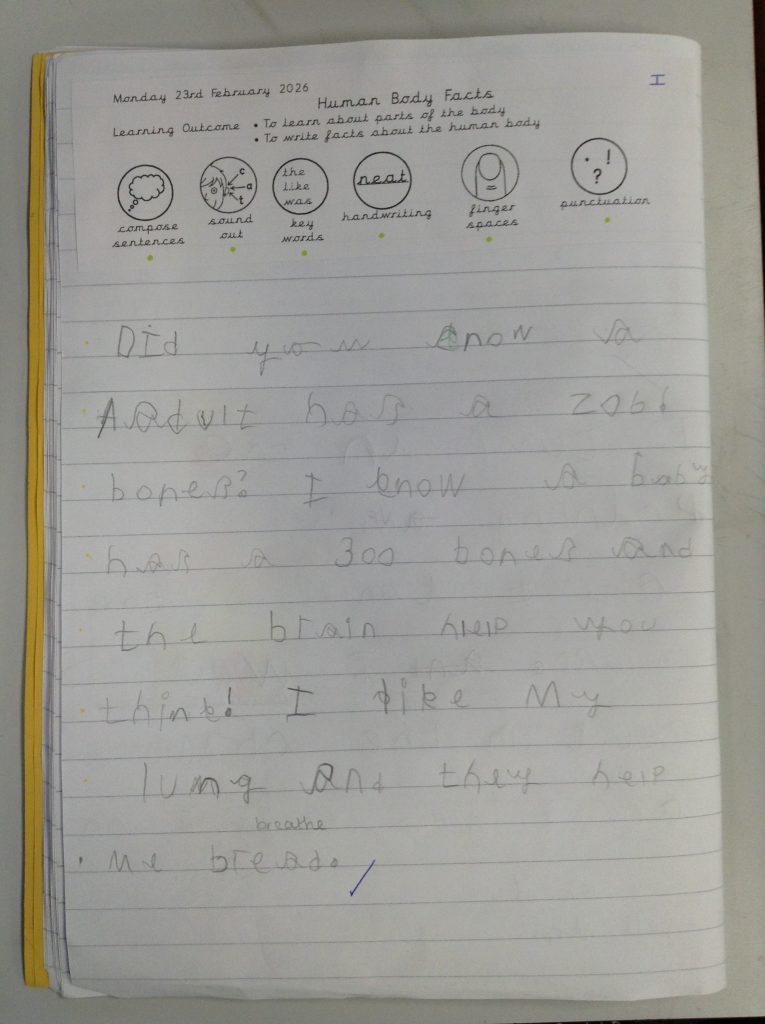 I
Monday 23rd February 2026
Human Body Facts
Learning Outcome • To learn about parts of the body
• To write facts about the human body
c
a
t
the
like
was
neat
. !
?
compose
sentences
sound
out
key
words
handwriting
finger
spaces
punctuation
DId you know a
Adult has a 206!
bones? I know a baby
has a 300 bones and
the brain help you
think! I like My
lung And they help
breathe
Me bread.